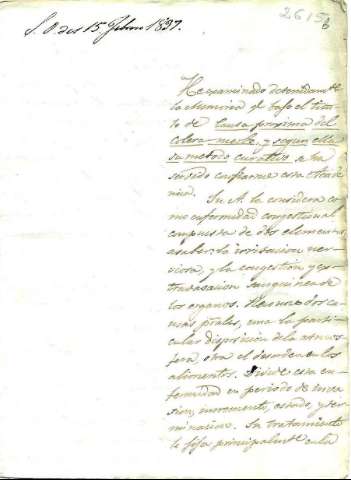 S. P. del 15. Febro 1837.
2615
He examinado detenidamte
la memoria q.e bajo el titu-
lo de Causa proxima del
Colera-morbo, y segun ella
su metodo curativo se ha
servido confiarme esta Acade
mia.
Su A. la considera co-
mo enfermedad congestional
compuesta de dos elementos,
a saber: la irritacion ner-
viosa, y la congestion y ex-
travasacion sanguinea de
los organos. Reune dos cau
sas prales, una la parti-
cular disposicion de la atmos-
fera, otra el desorden en los
alimentos. Divide esta en-
fermedad en periodo de inva
sion, incremento, estado, y ter-
minacion. Su tratamiento
le fija principalmte en la